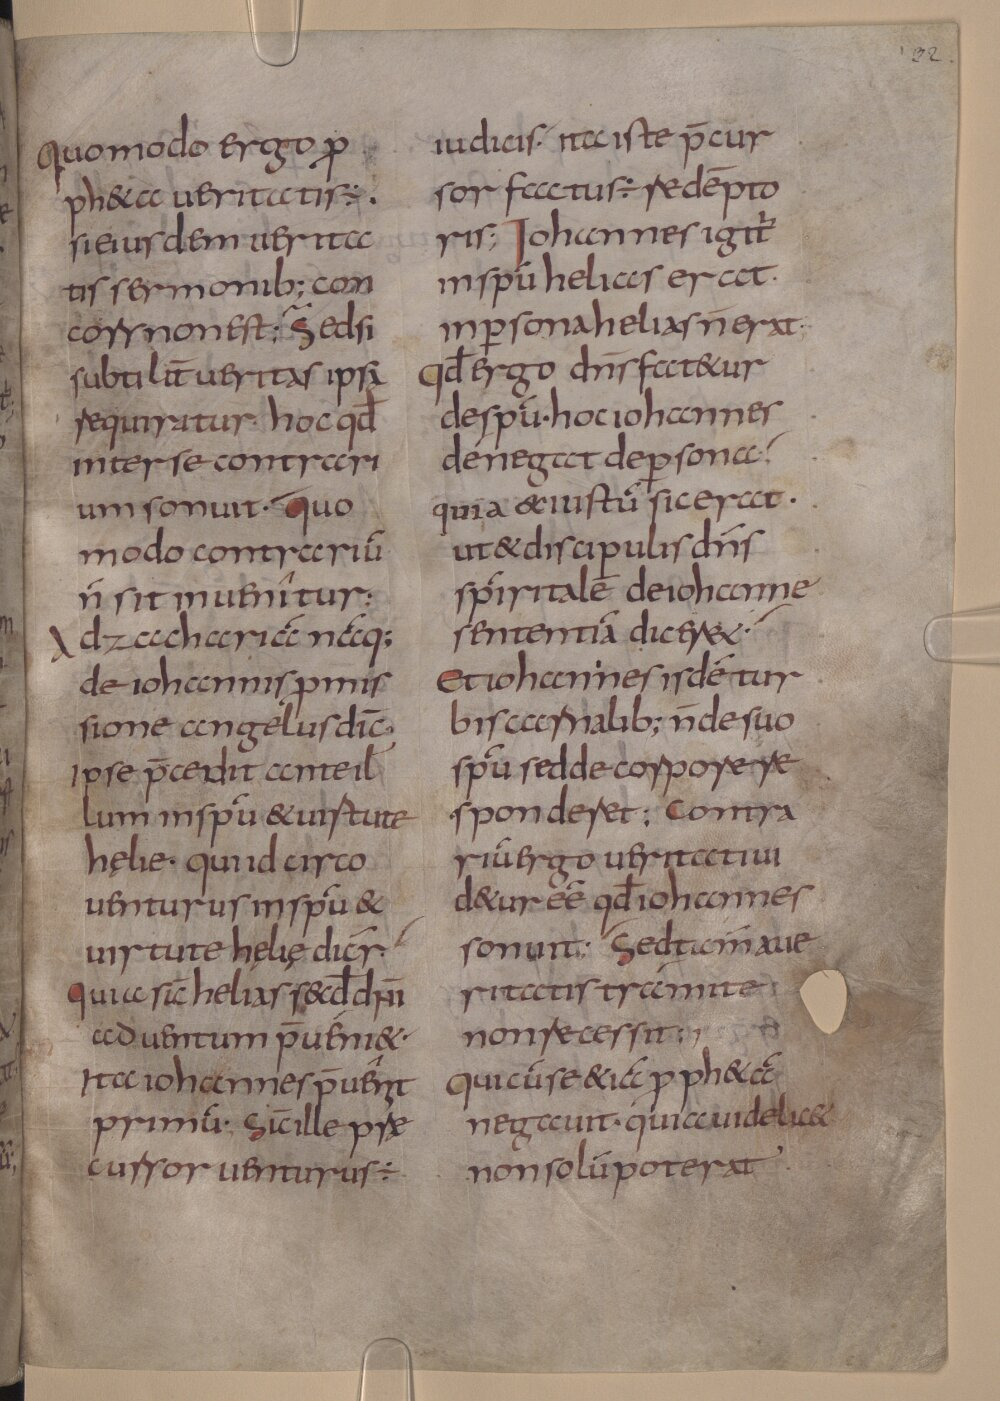 32
Quomodo ergo ꝓ
ph&a ueritatis:·
si eiusdem uerita
tis sermonib; con
cors non est; Sed si
subtilit̄ ueritas ipsā
requiratur· hoc qđ
inter se contrari
um sonuit· Quo
modo contrariū
n̄ sit inuenitur;
Ad zachariā nāq;
de iohannis ꝓmis
sione angelus dic̄·
ipse p̄cedit ante il
lum in spū & uirtute
helie· qui idcirco
uenturus in spū &
uirtute helię dicr̄·
quia sic̄ helias secđ dn̄i
aduentum p̄ueni&·
Ita iohannes p̄uenit
primū· Sic̄ ille pre
cursor uenturus:
iudicis· ita iste p̄cur
sor factus: redēpto
ris; Iohannes igit̄
in spū helias erat·
in ꝑsona helias n̄ erat;
Qđ ergo dn̄s fat&ur
de spū· hoc iohannes
denegat de ꝑsona·
quia & iustū sic erat·
ut & discipulis dn̄s
sp̄iritalē de iohanne
sententiā dicer&·
Et iohannes isdē tur
bis carnalib; n̄ de suo
spū sed de corpore re
sponderet; Contra
riū ergo ueritati ui
d&ur eē qđ iohannes
sonuit; Sed tam̄ a ue
ritatis tramite
non recessit;
Qui cū se &iā ꝓph&ā
negauit· quia uidelic&
non solū poterat